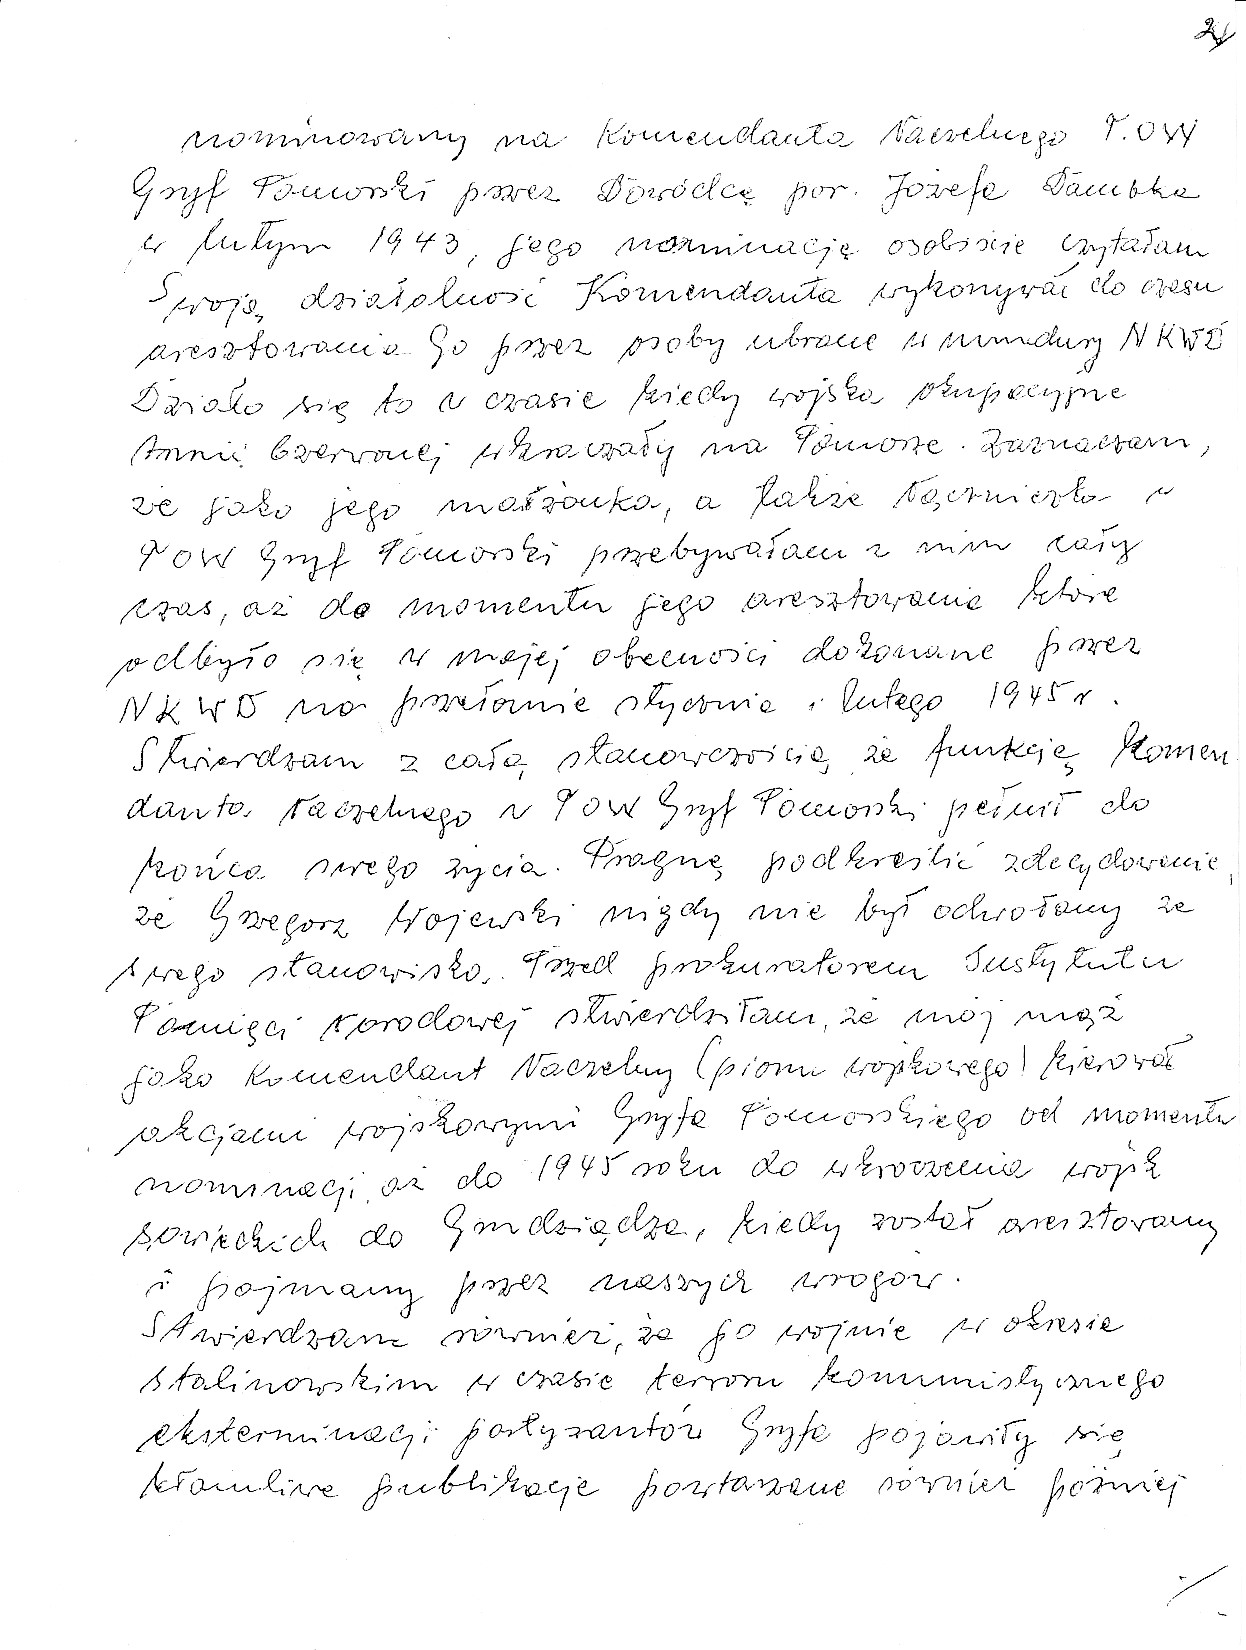 2
nominowany na Komendanta Naczelnego T.OW
Gryf Pomorski przez Dowódcę por. Józefa Dambka
w lutym 1943, jego nominację osobiście czytałam
Swoją działalność Komendanta wykonywał do czasu
aresztowania Go przez osoby ubrane w mundury NKWD
Działo się to w czasie kiedy wojska okupacyjne
Armii Czerwonej wkraczały na Pomorze. Zaznaczam,
że jako jego małżonka, a także łączniczka w
TOW Gryf Pomorski przebywałam z nim cały
czas, aż do momentu jego aresztowania które
odbyło się w mojej obecności dokonane przez
NKWD na przełomie stycznia i lutego 1945 r.
Stwierdzam z całą stanowczością że funkcję Komen
danta Naczelnego w TOW Gryf Pomorski pełnił do
końca swego życia. Pragnę podkreślić zdecydowanie,
że Grzegorz Wojewski nigdy nie był odwołany ze
swego stanowiska. Przed prokuratorem Instytutu
Pamięci Narodowej stwierdziłam, że mój mąż
jako Komendant Naczelny (pionu wojskowego) kierował
akcjami wojskowymi Gryfa Pomorskiego od momentu
nominacji aż do 1945 roku do wkroczenia wojsk
sowieckich do Grudziądza, kiedy został aresztowany
i pojmany przez naszych wrogów.
Stwierdzam również, że po wojnie w okresie
stalinowskim w czasie terroru komunistycznego
eksterminacji partyzantów Gryfa pojawiły się
kłamliwe publikacje powtarzane również później